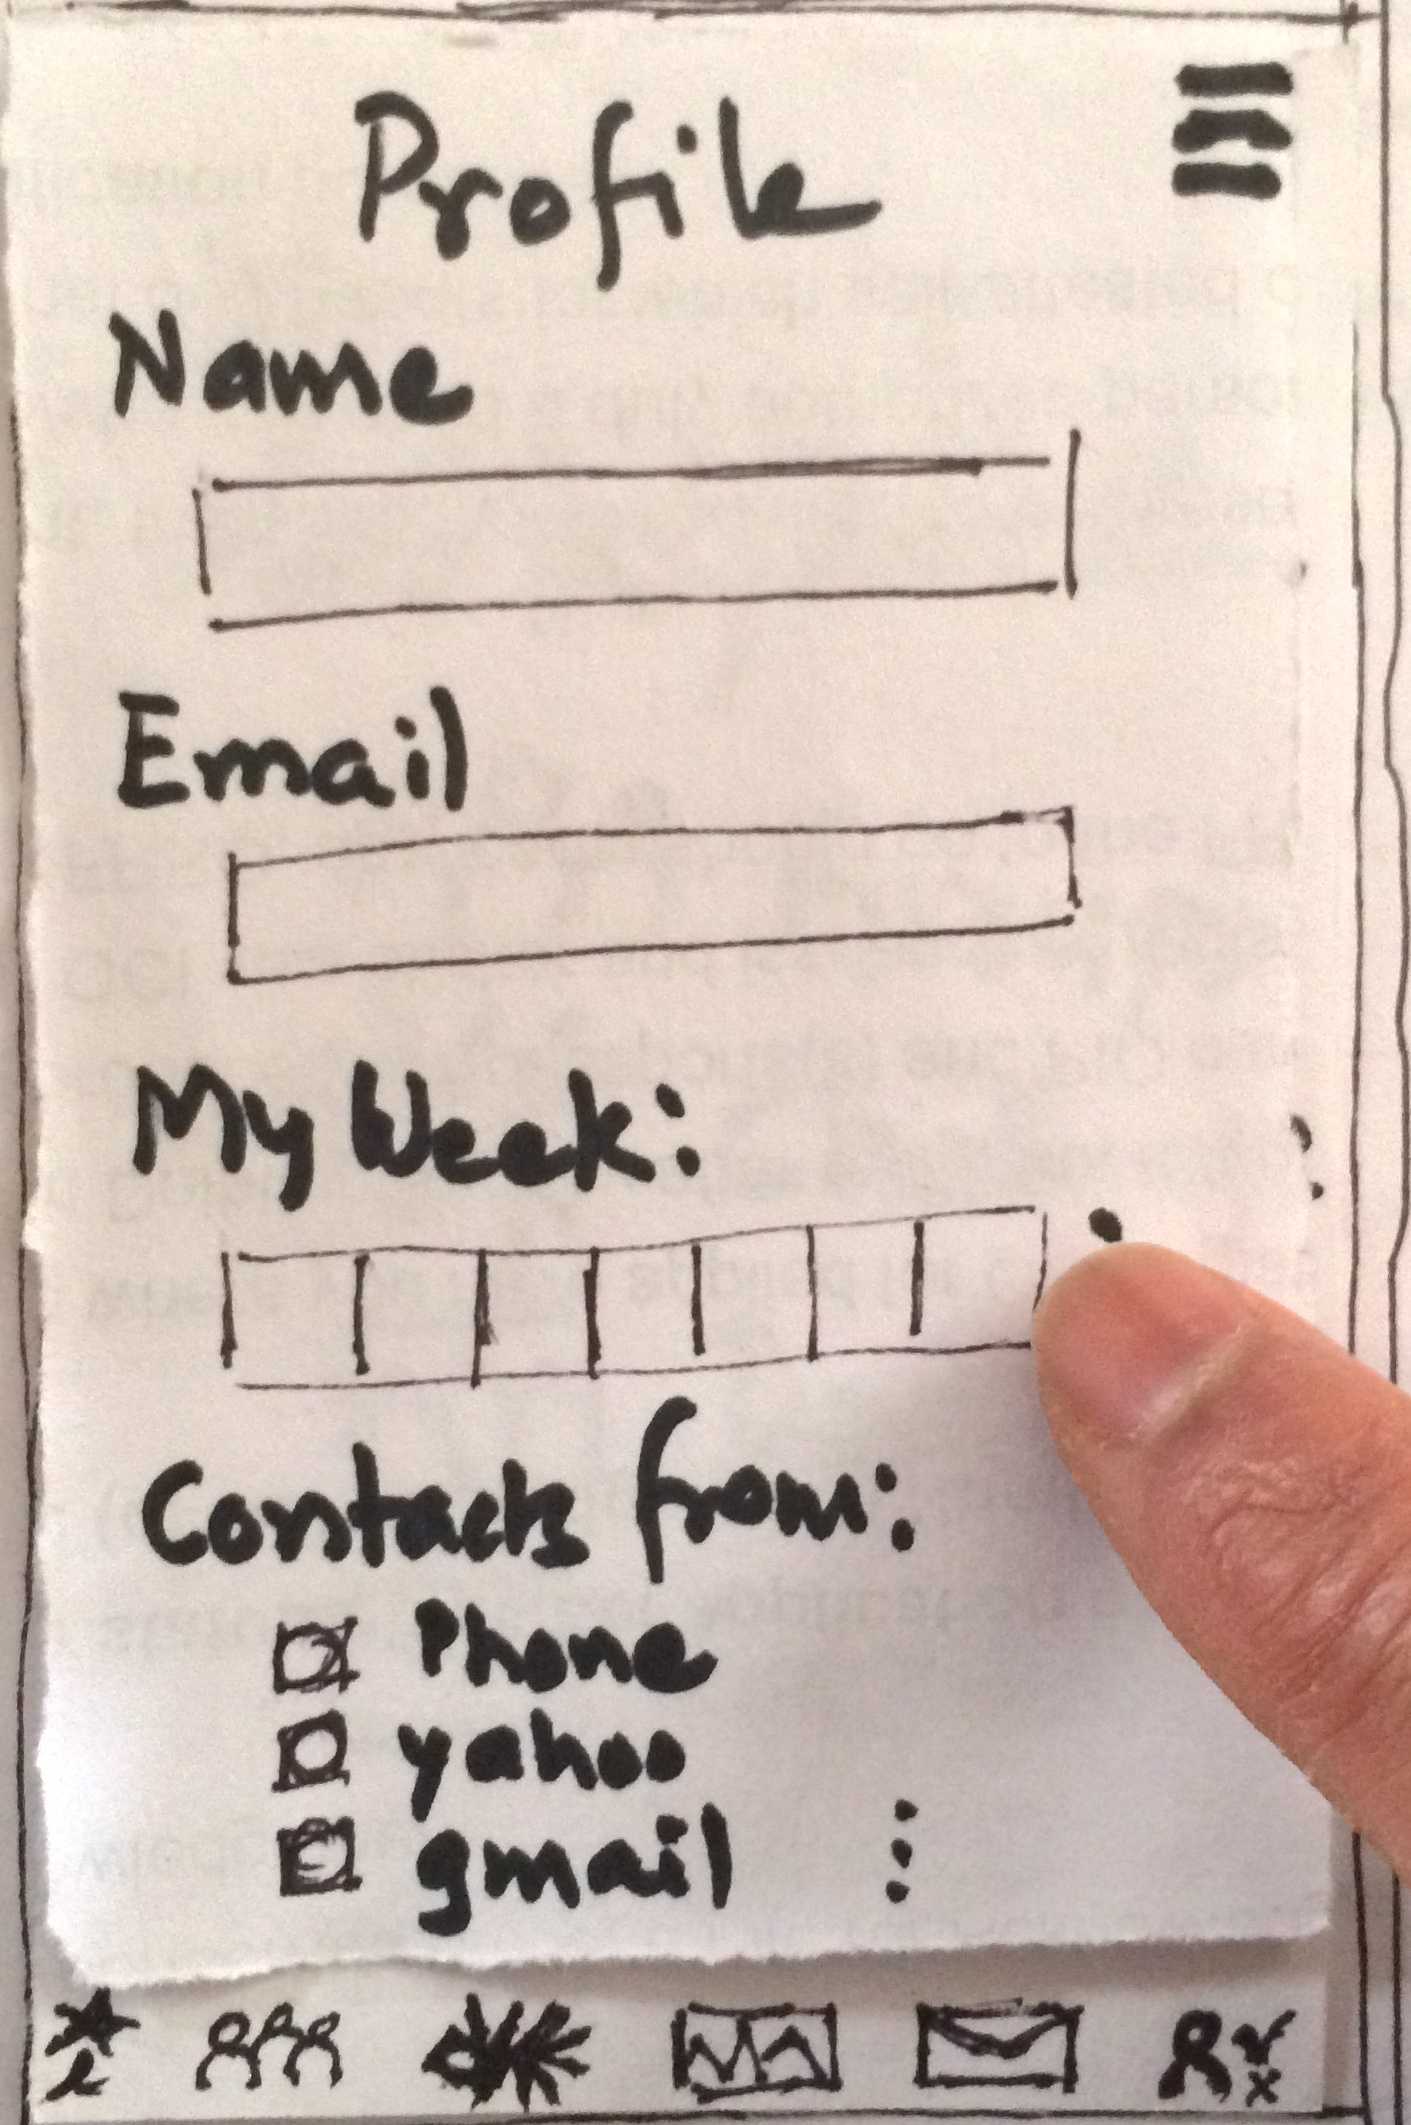 Profile
Name
Email
My Week:
Contacts from:
Phone
yahoo
gmail